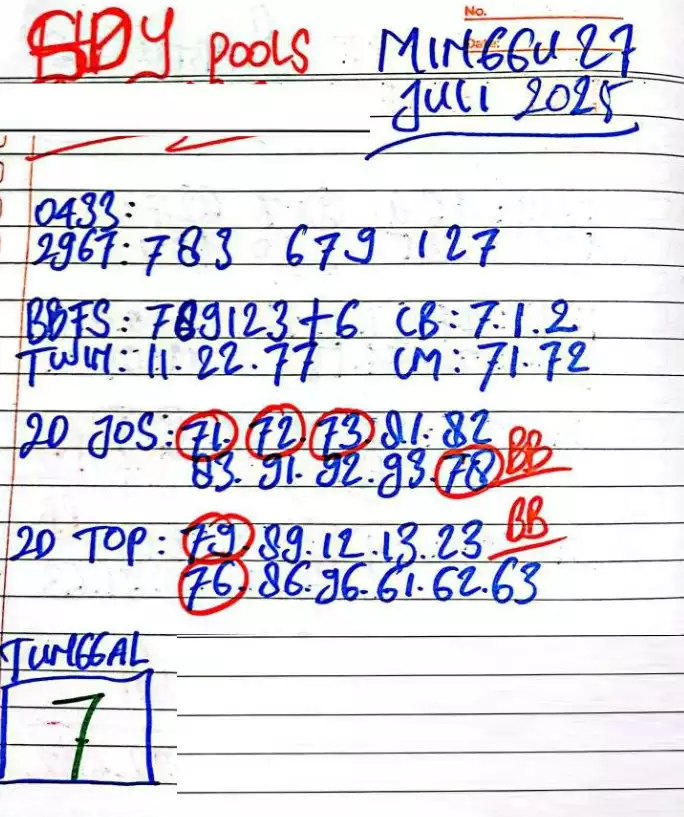 No.
SDY POOLS MINGGU 27
Date:
JULI 2025
0433:
2967: 783 679 127
BBFS: 789123+6 CB: 7.1.2
TWIN: 11.22.77 CM: 71.72
2D JOS: 71. 72. 73. 81. 82
83. 91. 92. 93. 78 BB
2D TOP: 79. 89. 12. 13. 23 BB
76. 86. 96. 61. 62. 63
TUNGGAL
7